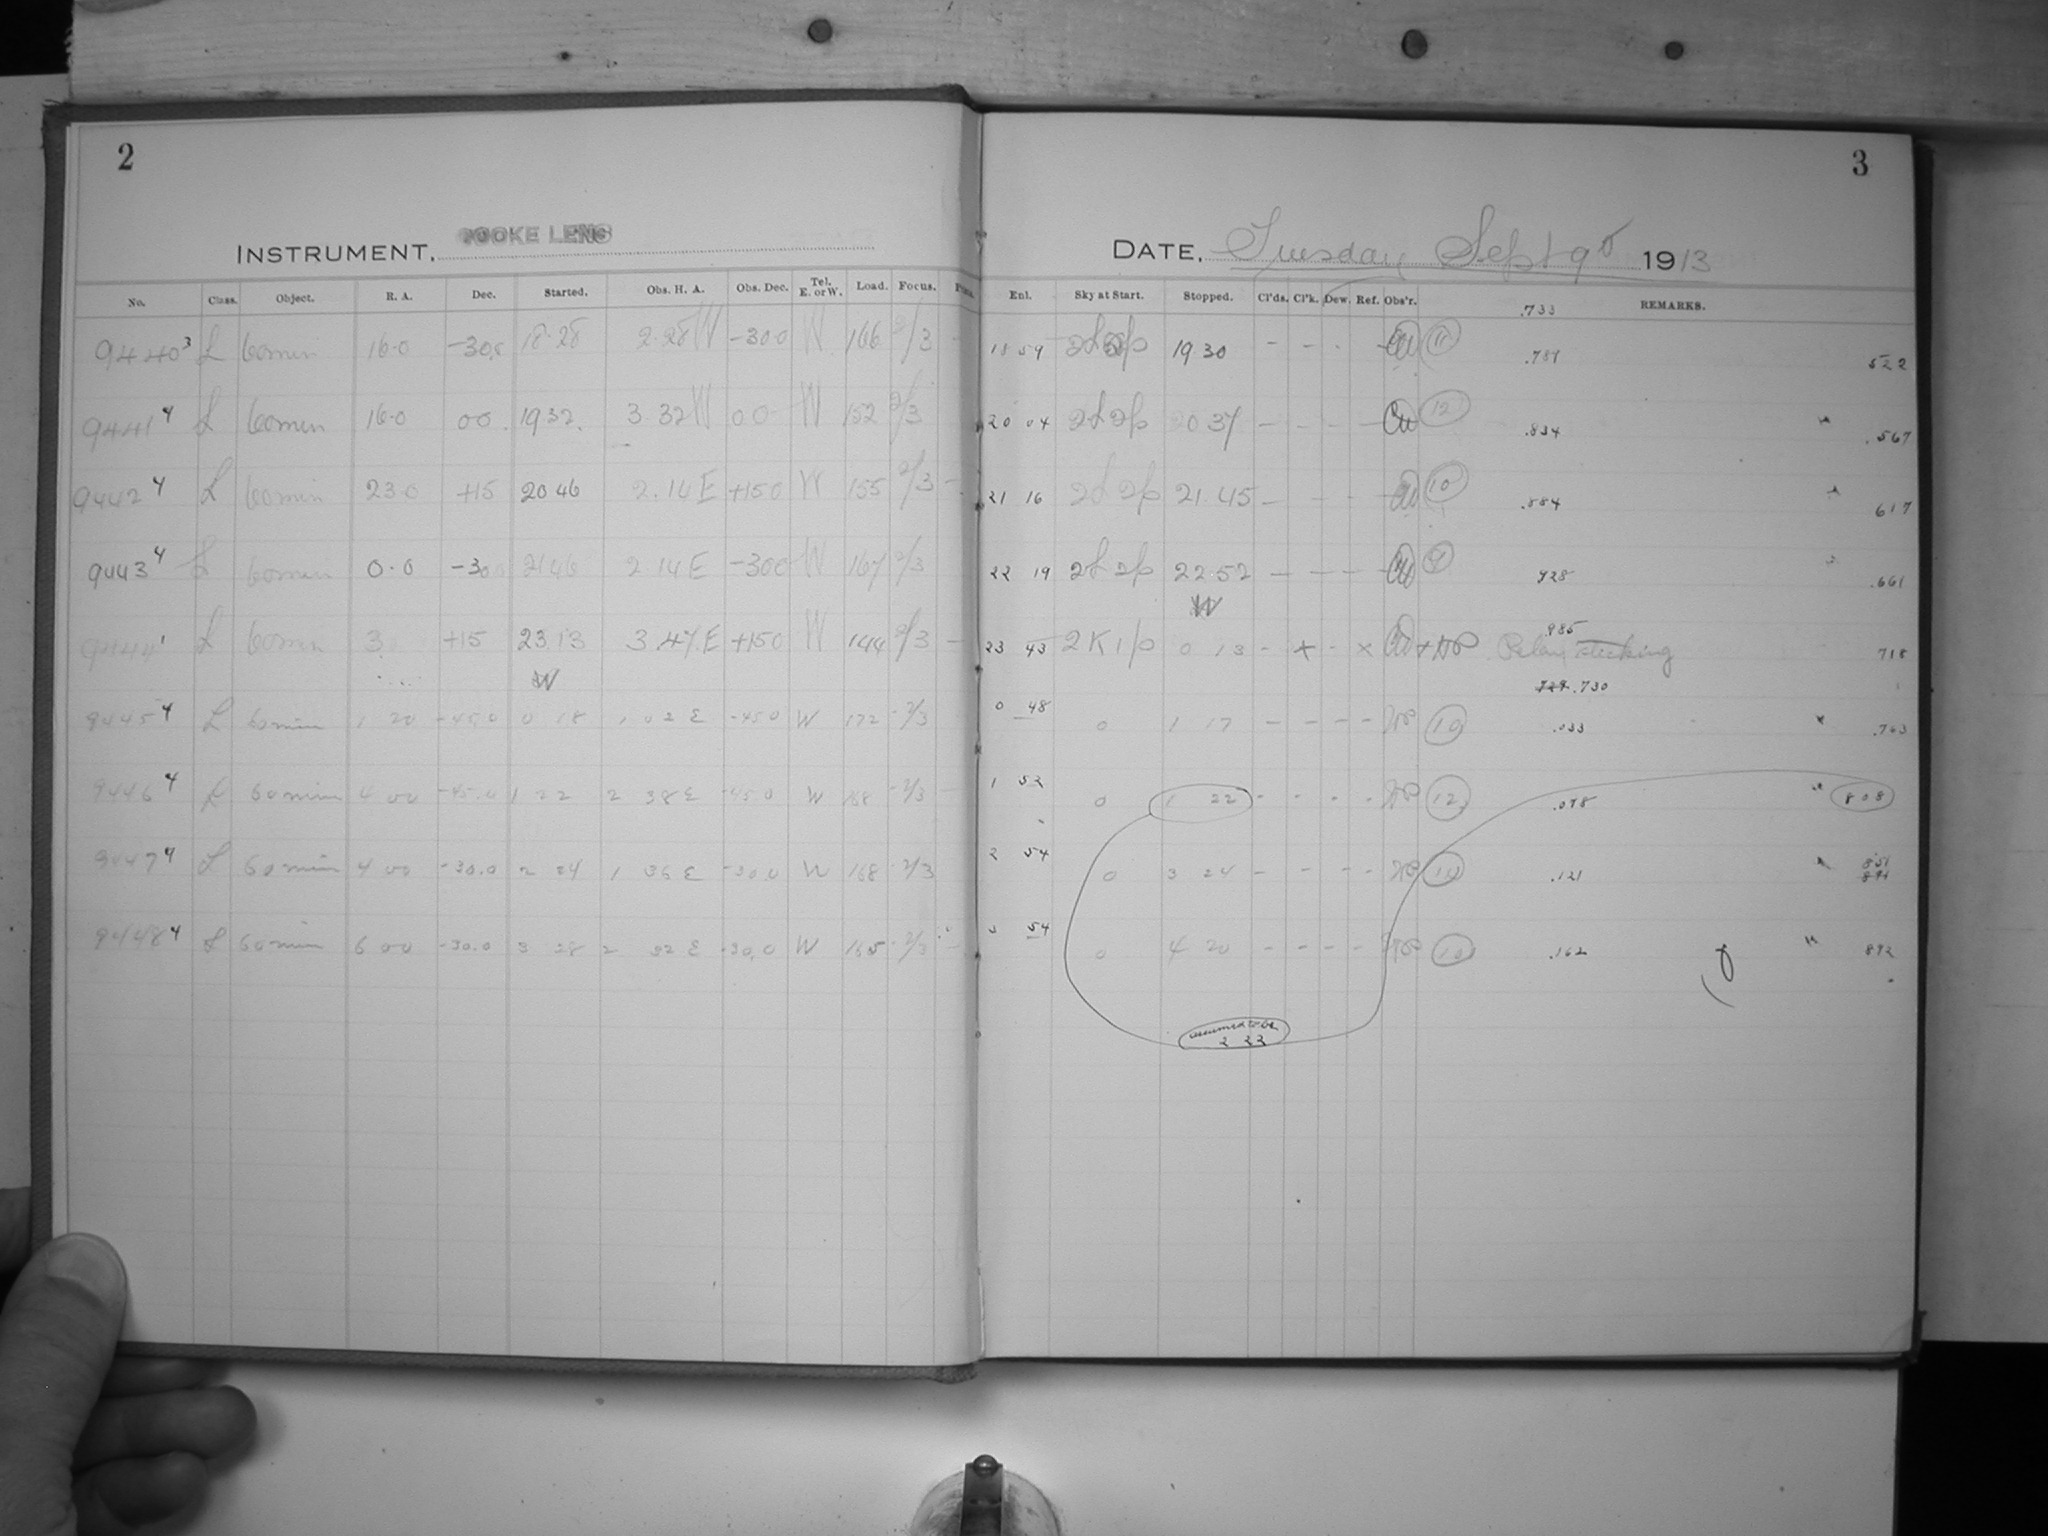 2
INSTRUMENT, COOKE LENS
No. Class. Object. R. A. Dec. Started. Obs. H. A. Obs. Dec. Tel. E. or W. Load. Focus.
9440 3 L 60 min 16.0 -30.0 18.28 2.28 W -30.0 W 166 2/3 -
9441 4 L 60 min 16.0 00. 19 32. 3.32 W 00 W 152 2/3
9442 4 L 60 min 23.0 +15 20 46 2.14 E +15.0 W 155 2/3 -
9443 4 L 60 min 0.0 -30.0 21 46 2 14 E -30.0 W 167 2/3
9444 1 L 60 min 3 +15 23 13 3.47 E +15.0 W 144 2/3 -
W
9445 4 L 60 min 1 20 -45.0 0 18 1 02 E -45.0 W 172 2/3
9446 4 L 60 min 4 00 -45.0 1 22 2 38 E -45.0 W 168 2/3 -
9447 4 L 60 min 4 00 -30.0 2 24 1 36 E -30.0 W 168 2/3
9448 4 L 60 min 6 00 -30.0 3 28 2 32 E -30.0 W 165 2/3 -
3
DATE, Tuesday Sept 9th 1913
Enl. Sky at Start. Stopped. Cl'ds. Cl'k. Dew. Ref. Obs'r. REMARKS.
.733
18 59 19 30 - - - - 11 .789 522
20 04 2L2p 20 37 - - - - 12 .834 " .567
21 16 2L2p 21.45 - - - - 10 .884 " 617
22 19 2L2p 22.52 - - - - 9 928 " .661
W
.985
23 43 2K1p 0 13 - x - x Relay sticking 718
.729 .730
0 48 0 1 17 - - - - 10 .033 " .763
1 52 0 1 22 - - - - 12 .078 " 808
2 54 0 3 24 - - - - .121 " 851
3 54 0 4 20 - - - - 10 .162 " 892
assumed to be
2 22